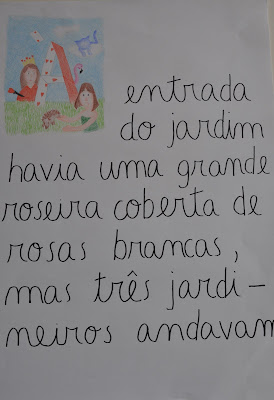 A entrada
do jardim
havia uma grande
roseira coberta de
rosas brancas,
mas três jardi-
neiros andavam